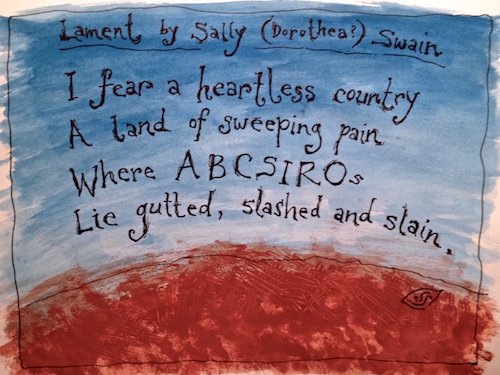 Lament by Sally (Dorothea?) Swain
I fear a heartless country
A land of sweeping pain
Where ABCSIROs
Lie gutted, slashed and slain.